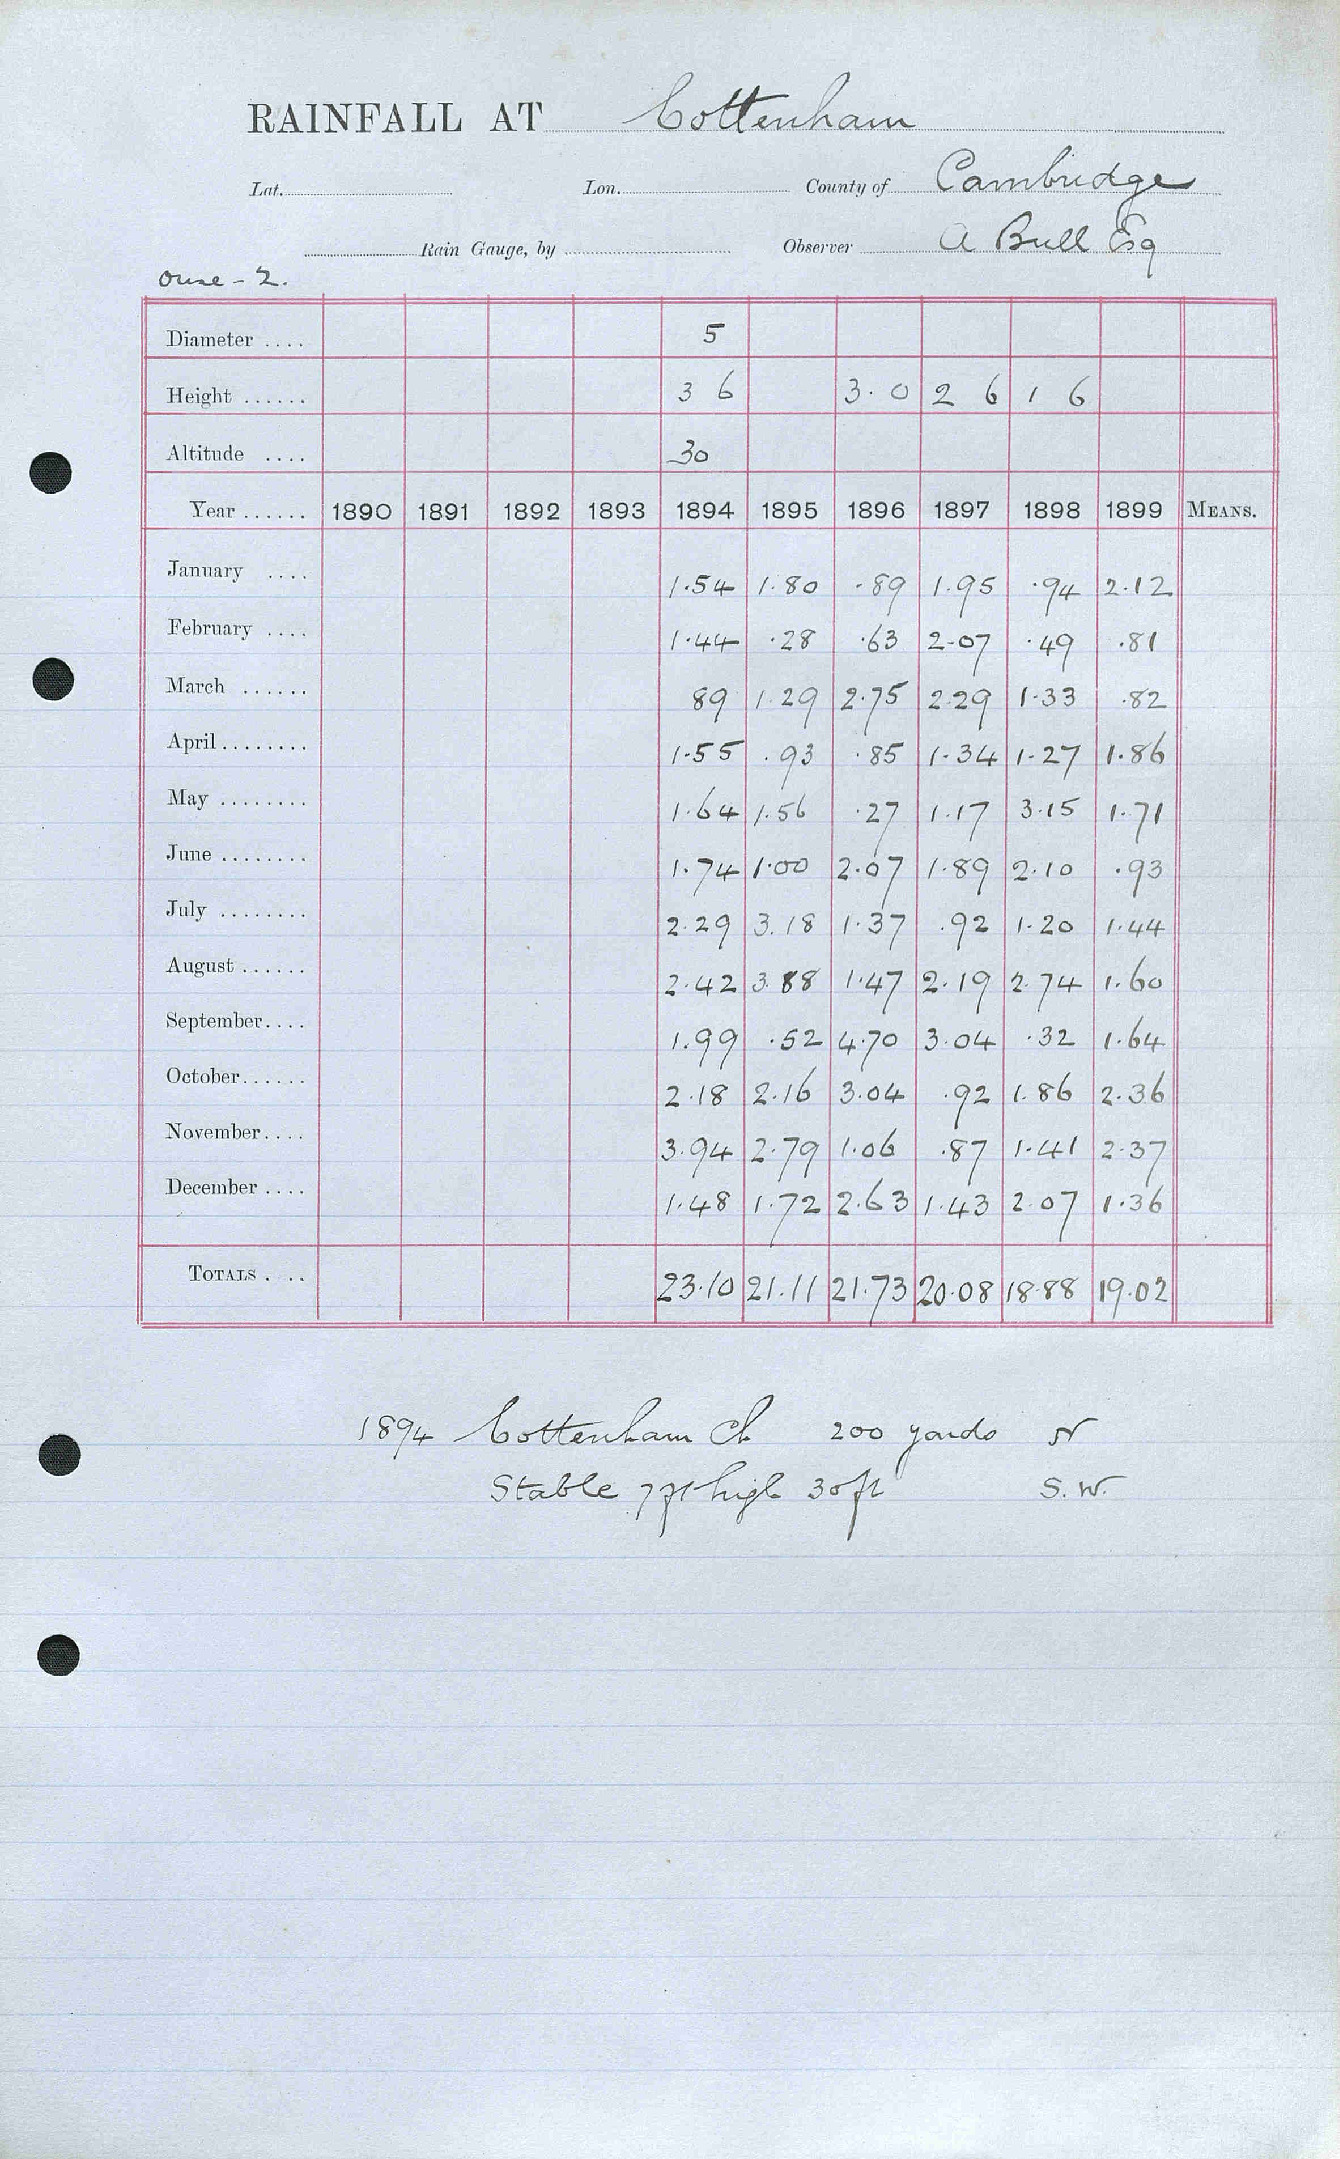 RAINFALL AT Cottenham
Lat. Lon. County of Cambridge
Rain Gauge, by Observer A Bull Esq
Ouse - 2.
Diameter .... 5
Height ...... 3 6 3. 0 2 6 1 6
Altitude .... 30
Year ...... 1890 1891 1892 1893 1894 1895 1896 1897 1898 1899 MEANS.
January .... 1.54 1.80 .89 1.95 .94 2.12
February .... 1.44 .28 .63 2.07 .49 .81
March ...... 89 1.29 2.75 2.29 1.33 .82
April ........ 1.55 .93 .85 1.34 1.27 1.86
May ........ 1.64 1.56 .27 1.17 3.15 1.71
June ........ 1.74 1.00 2.07 1.89 2.10 .93
July ........ 2.29 3.18 1.37 .92 1.20 1.44
August ...... 2.42 3.88 1.47 2.19 2.74 1.60
September.... 1.99 .52 4.70 3.04 .32 1.64
October...... 2.18 2.16 3.04 .92 1.86 2.36
November.... 3.94 2.79 1.06 .87 1.41 2.37
December .... 1.48 1.72 2.63 1.43 2.07 1.36
TOTALS . .. 23.10 21.11 21.73 20.08 18.88 19.02
1894 Cottenham Ch 200 yards N
Stable 7ft high 30ft S.W.